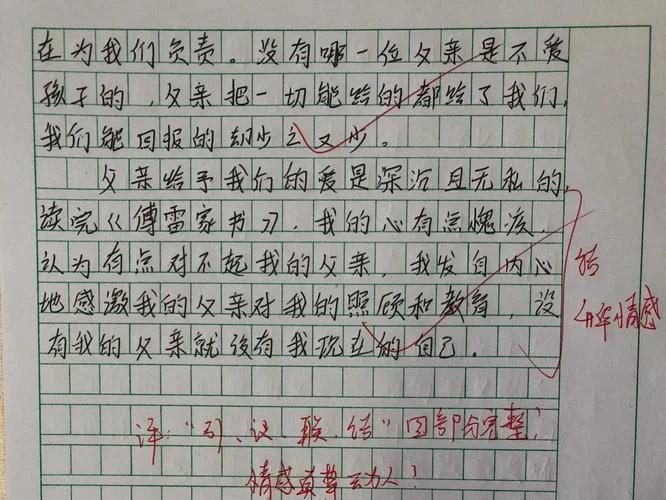 在为我们负责。没有哪一位父亲是不爱
孩子的，父亲把一切能给的都给了我们，
我们能回报的却少之又少。
父亲给予我们的爱是深沉且无私的，
读完《傅雷家书》，我的心有点愧疚，
认为有点对不起我的父亲，我发自内心
地感激我的父亲对我的照顾和教育，没
有我的父亲就没有我现在的自己。
结
升华情感
评："引、议、联、结"四部分完整！
情感真挚动人！